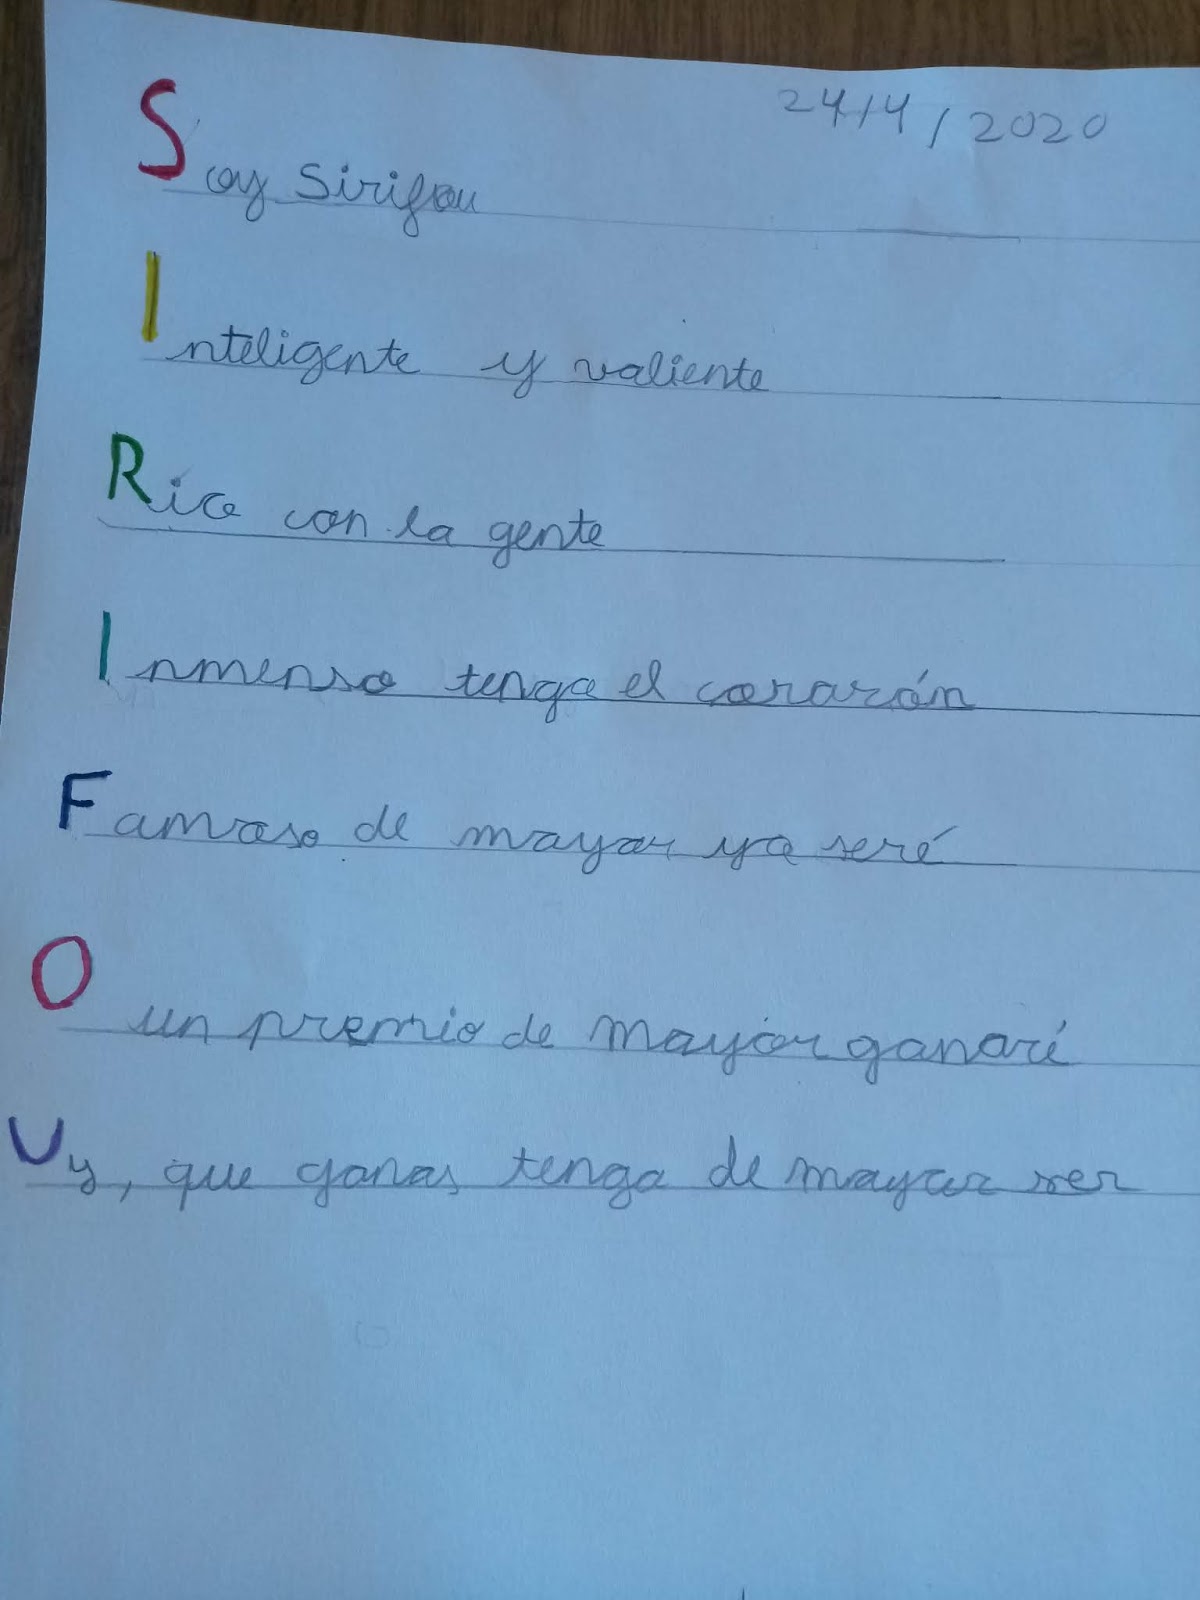 24/4/2020
Soy Sirifou
Inteligente y valiente
Rico con la gente
Inmenso tengo el corazón
Famoso de mayor yo seré
O un premio de mayor ganaré
Uy, que ganas tengo de mayor ser